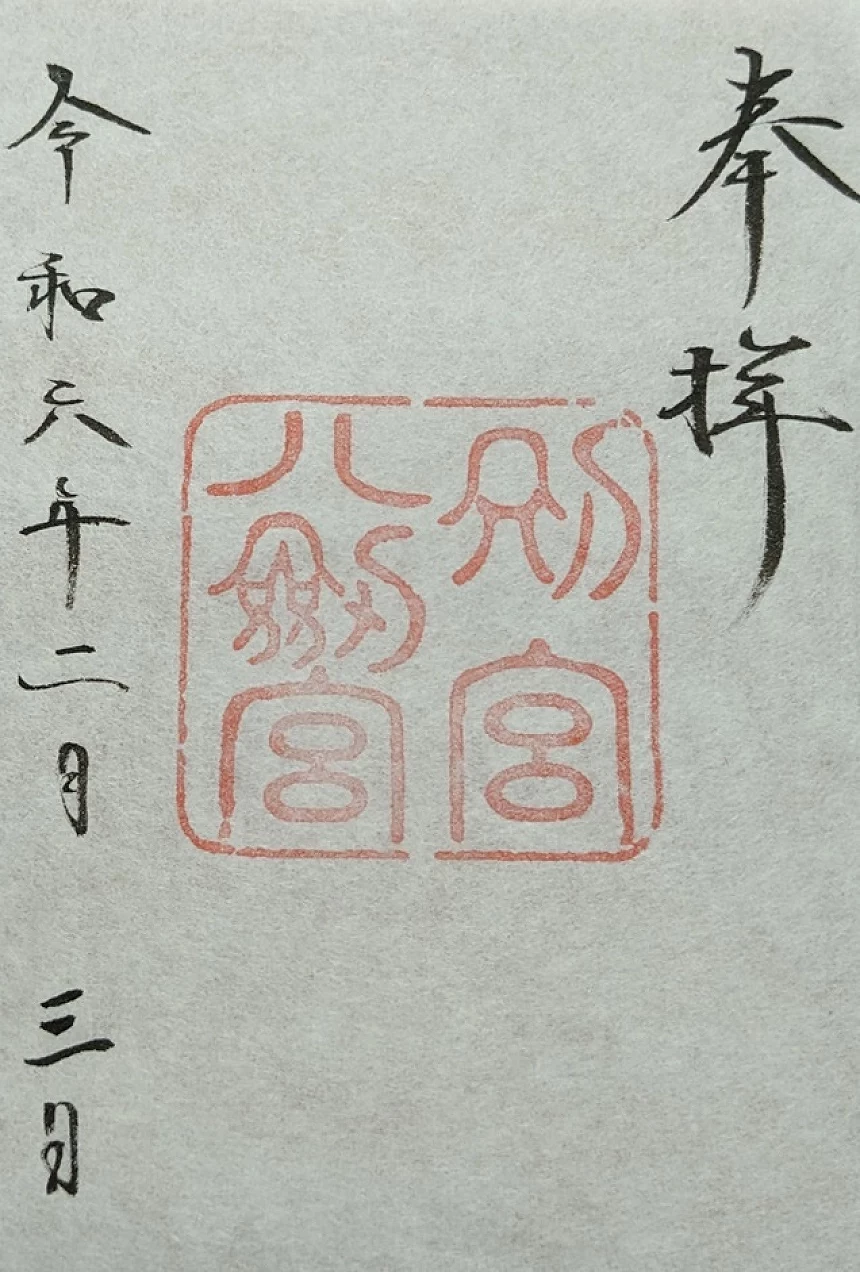 奉拝
別宮
八劔宮
令和六年二月三日